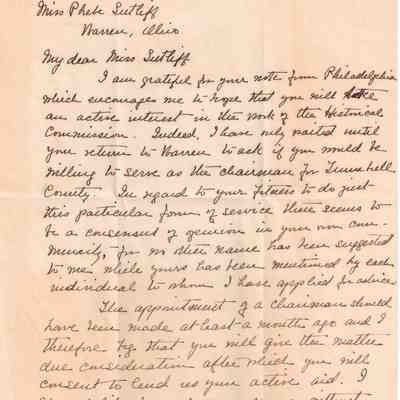 Miss Phebe Sutliff
Warren, Ohio.
My dear Miss Sutliff
I am grateful for your note from Philadelphia
which encourages me to hope that you will take
an active interest in the work of the Historical
Commission. Indeed, I have only waited until
your return to Warren to ask if you would be
willing to serve as the chairman for Trumbull
County. In regard to your fitness to do just
this particular form of service there seems to
be a consensus of opinion in your own com-
munity, for no other name has been suggested
to me while yours has been mentioned by each
individual to whom I have applied for advice.
The appointment of a chairman should
have been made at least a month ago and I
therefore beg that you will give the matter
due consideration after which you will
consent to lend us your active aid. I